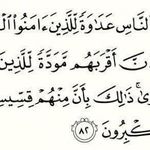 النَّاسِ عَدَاوَةً لِّلَّذِينَ ءَامَنُوا
أَقْرَبَهُم مَّوَدَّةً لِّلَّذِينَ
ذَٰلِكَ بِأَنَّ مِنْهُمْ قِسِّيسِ
كْبِرُونَ ٨٢